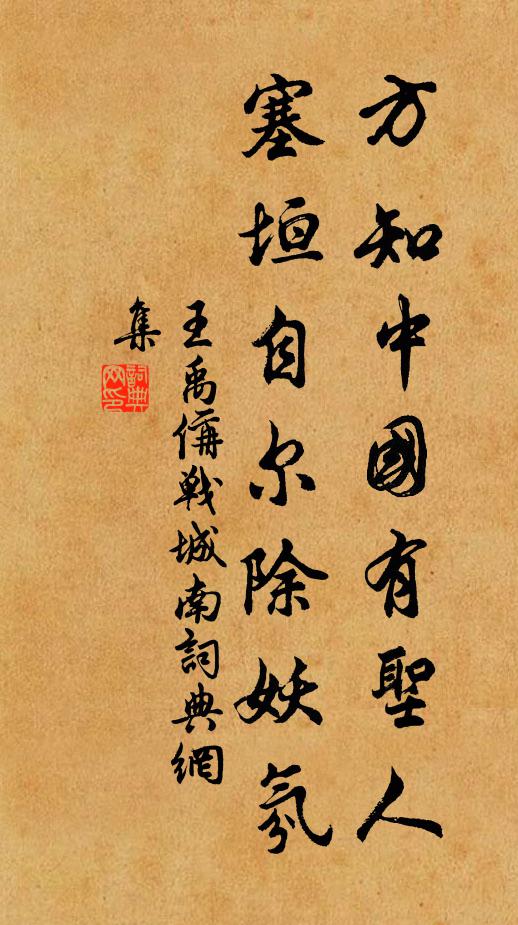 方知中國有聖人
塞垣自尔除妖氛
王禹偁戰城南詞典網
集
詞典網印